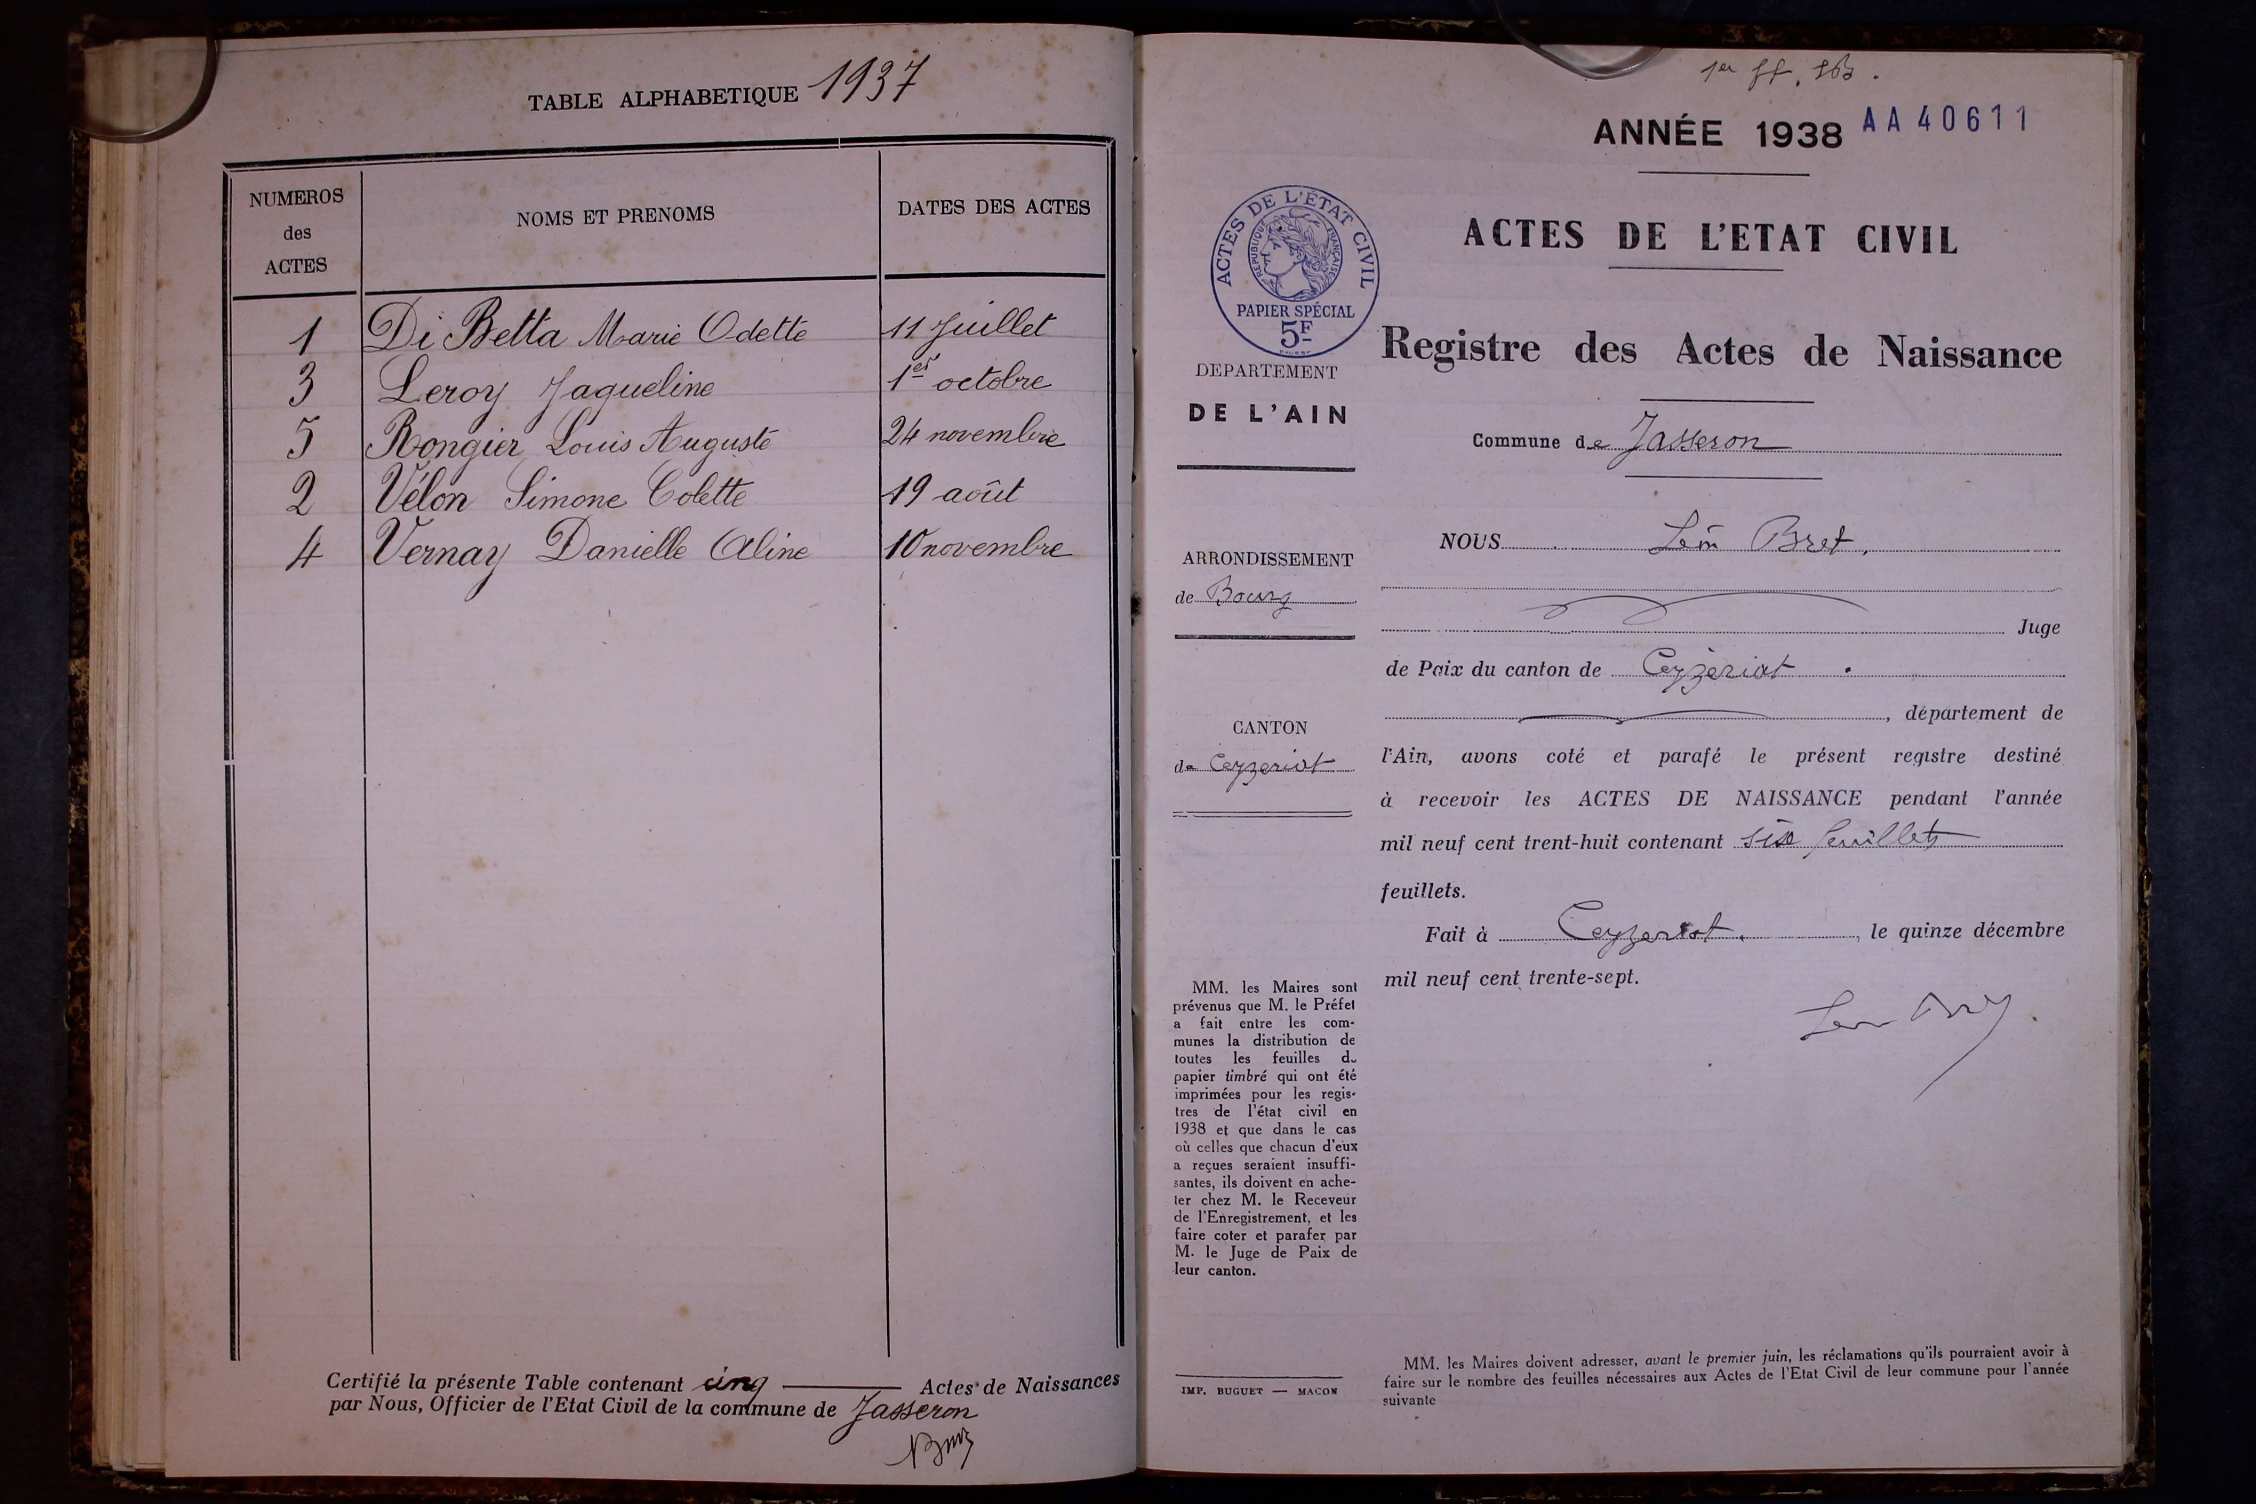 TABLE ALPHABETIQUE 1937
NUMEROS
des
ACTES
NOMS ET PRENOMS
DATES DES ACTES
1 Di Betta Marie Odette 11 Juillet
3 Leroy Jaqueline 1er octobre
5 Rongier Louis Auguste 24 novembre
2 Vélon Simone Colette 19 août
4 Vernay Danielle Aline 10 novembre
Certifié la présente Table contenant cinq Actes de Naissances
par Nous, Officier de l'Etat Civil de la commune de Jasseron
1er ff.
ANNÉE 1938 AA40611
ACTES DE L'ÉTAT CIVIL
REPUBLIQUE FRANÇAISE
PAPIER SPÉCIAL
5F
ACTES DE L'ETAT CIVIL
Registre des Actes de Naissance
DEPARTEMENT
DE L'AIN
Commune de Jasseron
ARRONDISSEMENT
de Bourg
CANTON
de Ceyzeriat
NOUS Léon Bret,
Juge
de Paix du canton de Ceyzériat.
, département de
l'Ain, avons coté et parafé le présent registre destiné
à recevoir les ACTES DE NAISSANCE pendant l'année
mil neuf cent trent-huit contenant six feuillets
feuillets.
Fait à Ceyzeriat, le quinze décembre
mil neuf cent trente-sept.
MM. les Maires sont
prévenus que M. le Préfet
a fait entre les com-
munes la distribution de
toutes les feuilles de
papier timbré qui ont été
imprimées pour les regis-
tres de l'état civil en
1938 et que dans le cas
où celles que chacun d'eux
a reçues seraient insuffi-
santes, ils doivent en ache-
ter chez M. le Receveur
de l'Enregistrement, et les
faire coter et parafer par
M. le Juge de Paix de
leur canton.
IMP. BUGUET — MACON
MM. les Maires doivent adresser, avant le premier juin, les réclamations qu'ils pourraient avoir à
faire sur le nombre des feuilles nécessaires aux Actes de l'Etat Civil de leur commune pour l'année
suivante